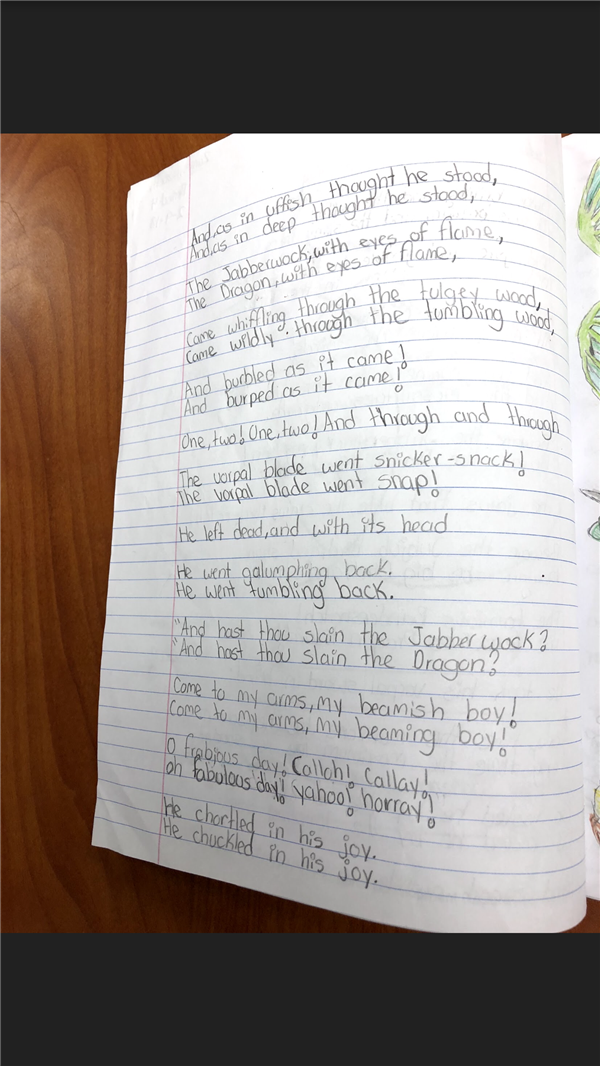 And, as in uffish thought he stood,
And, as in deep thought he stood,
The Jabberwock, with eyes of flame,
The Dragon, with eyes of flame,
Came whiffling through the tulgey wood,
Came wildly through the tumbling wood,
And burbled as it came!
And burped as it came!
One, two! One, two! And through and through
The vorpal blade went snicker-snack!
The vorpal blade went snap!
He left dead, and with its head
He went galumphing back.
He went tumbling back.
"And hast thou slain the Jabberwock?
"And hast thou slain the Dragon?
Come to my arms, my beamish boy!
Come to my arms, my beaming boy!
O frabjous day! Calloh! Callay!
oh fabulous day! yahoo! horray!
He chortled in his joy.
He chuckled in his joy.